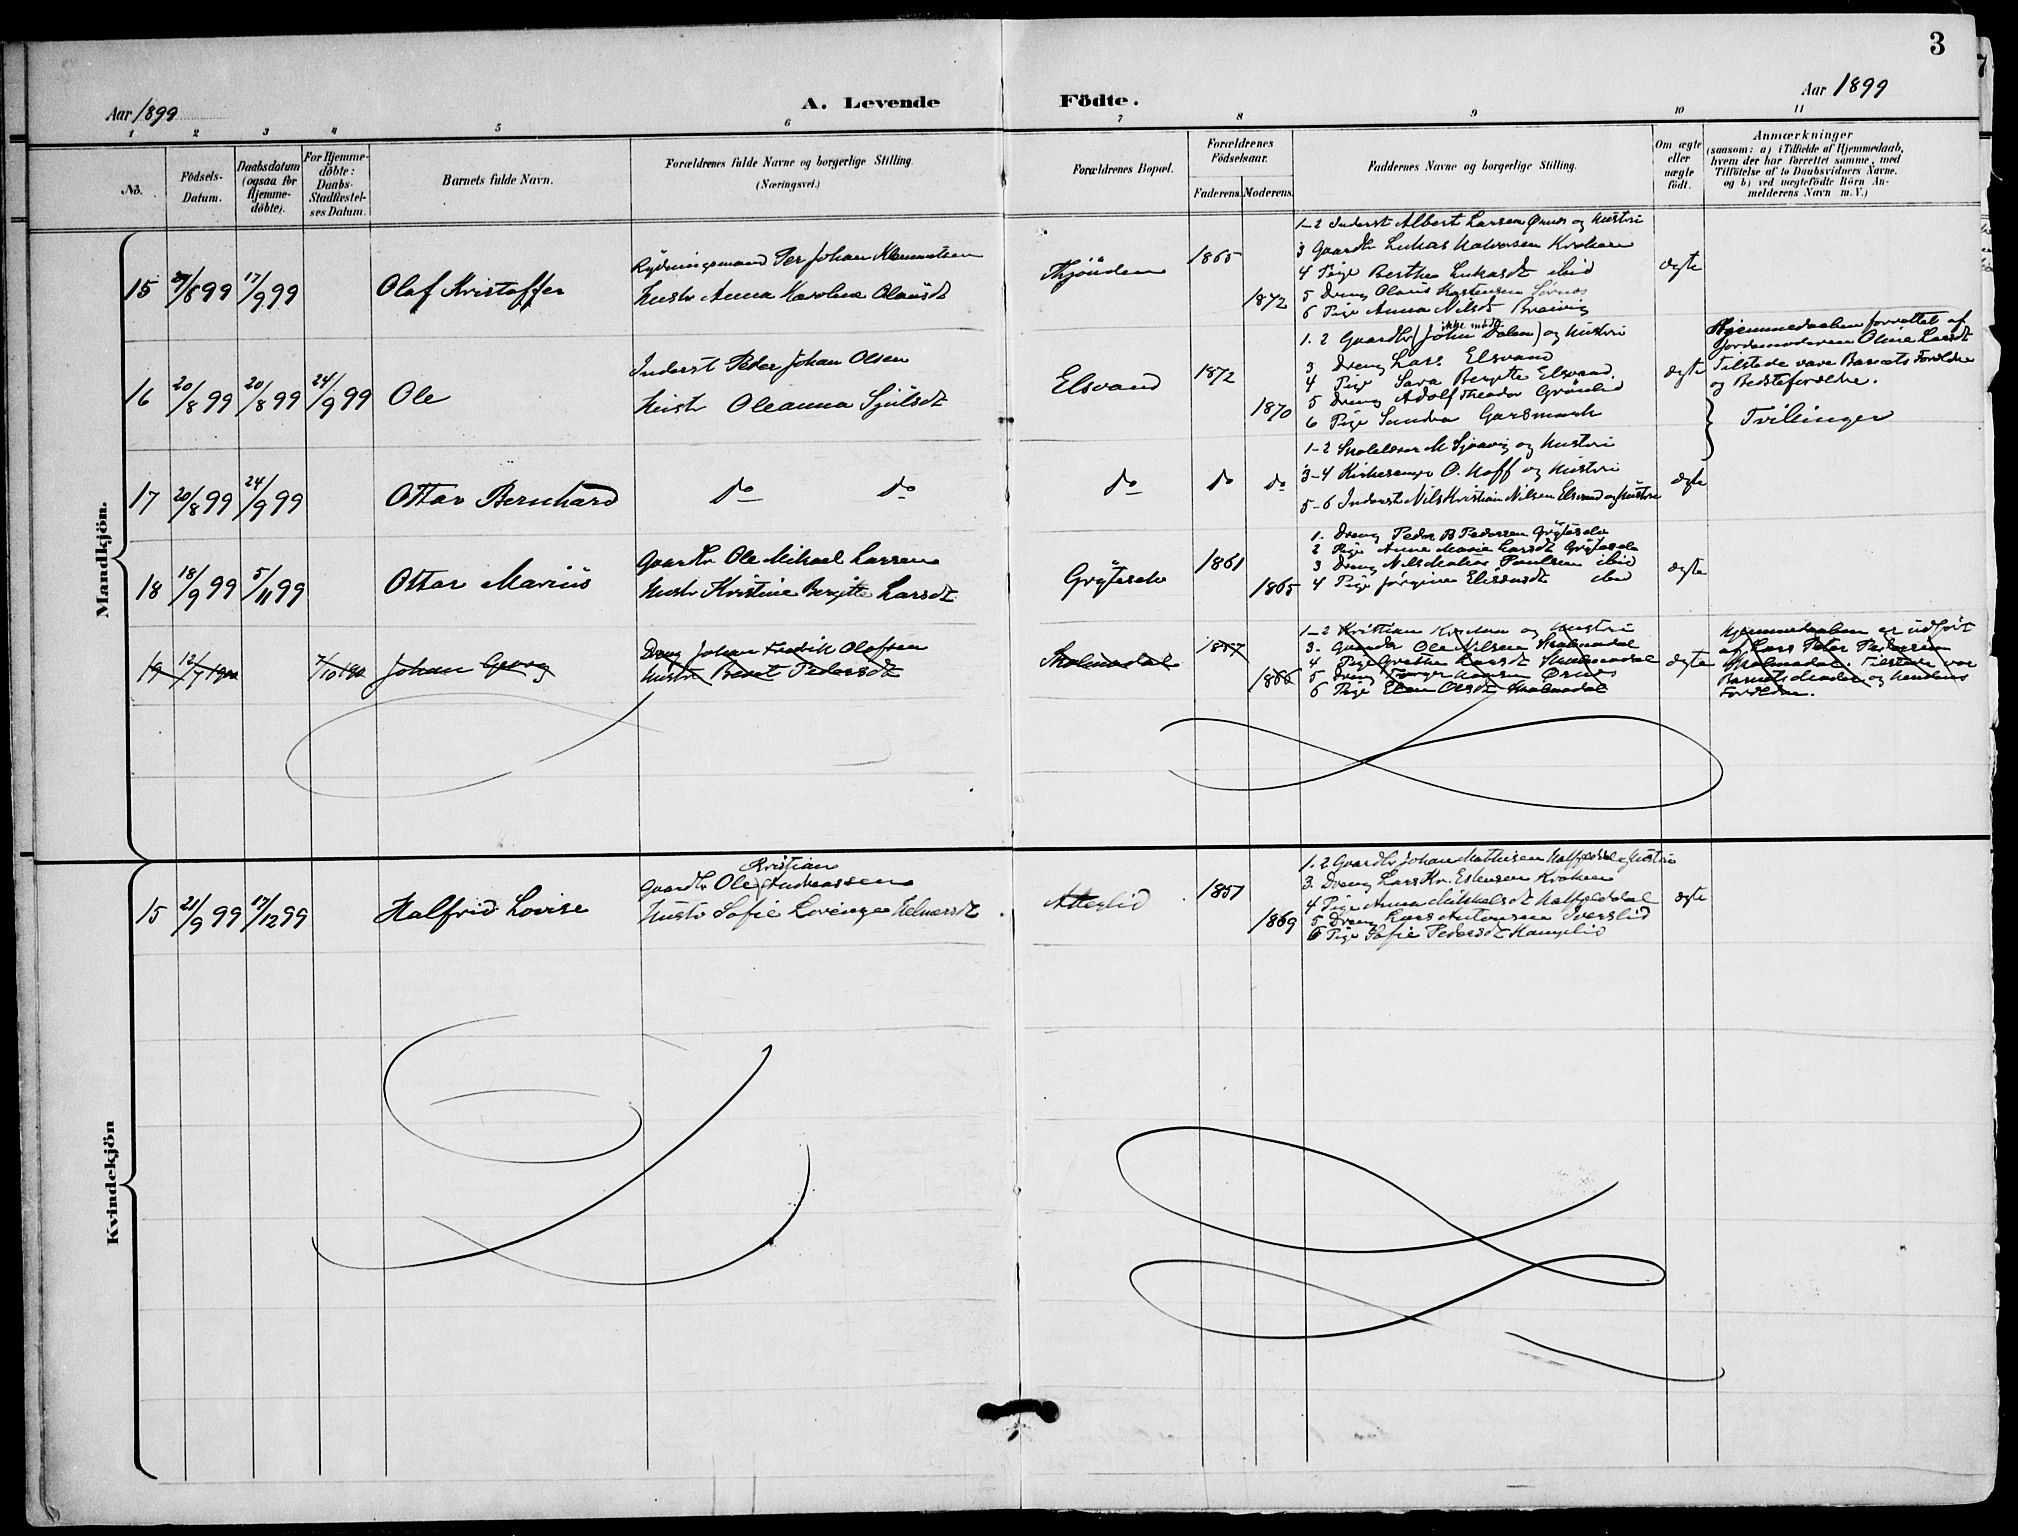 3
Aar 1899
A. Levende Födte.
Aar 1899
1 2 3 4 5 6 7 8 9 10 11
No.
Födsels-Datum.
Daabsdatum (ogsaa for Hjemme-döbte).
For Hjemme-döbte: Daabs-Stadfæstel-ses Datum.
Barnets fulde Navn.
Forældrenes fulde Navne og borgerlige Stilling.
(Næringsvei.)
Forældrenes Bopæl.
Forældrenes Födselsaar.
Faderens. Moderens.
Faddernes Navne og borgerlige Stilling.
Om ægte eller uægte födt.
Anmærkninger
(saasom: a) i Tilfælde af Hjemmedaab,
hvem der har forrettet samme, med
Tilföielse af to Daabsvidners Navne,
og b) ved uægtefödte Börn An-
melderens Navn m. V.)
Mandkjön.
15 29/8 99 17/9 99 Olaf Kristoffer
Rydningsmand Per Johan Klemmetsen
Hustr Anna Karolina Olausdt
1865
1872
1-2 Inderst Albert Larsen Ørnes og Hustru
3 Gaardbr Lukas Halvorsen Kroken
4 Pige Berthea Lukasdt ibid
5 Dreng Olaus Karstensen Sörnes
6 Pige Anna Nilsdt Breivig
ægte
16 20/8 99 20/8 99 24/9 99 Ole
Inderst Peder Johan Olsen
Hustr Oleanna Sjulsdt
Elsvand
1872
1870
1. 2 Gaardbr (John Dalen) og Hustru
ikke mödt
3 Dreng Lars Elsvand
4 Pige Sara Bergitte Elsvand
5 Dreng Adolf Theodor Grönlid
6 Pige Sandra Garsmark
ægte
Hjemmedaaben forrettet af
Jordemoderen Oline Larsdt
Tilstede vare Barnets Forældre
og Bedsteforældre.
Tvillinger
17 20/8 99 24/9 99 Ottar Bernhard
do do do do do
1-2 Skolelærer M Sjaavig og Hustru
3-4 Kirkesanger O. Hoff og Hustru
5-6 Inderst Nils Kristian Nilsen Elsvand og Hustru
ægte
18 18/9 99 5/11 99 Ottar Marius
Gaardbr Ole Mikael Larsen
Hustr Kristine Bergitte Larsdt
Gryteselv
1861
1865
1. Dreng Peder B Pedersen Gryteselv
2 Pige Anne Marie Larsdt Gryteselv
3 Dreng Nils Mathias Paulsen ibid
4 Pige Jörgine Eliasdt ibid
ægte
19 12/7 1900 7/10 1900 Johan Georg
Dreng Johan Fredrik Olofsen
Hustr Beret Pedersdt
Skalmodal
1857
1866
1-2 Kristian og Hustru
3. Gaardbr Ole Nilsen Skalmodal
4 Pige Grethe Larsdt Skalmodal
5 Dreng Hansen Ørnes
6 Pige Elen Olsdt Skalmodal
ægte
Hjemmedaaben er udfört
af Lars Peter Pedersen
Skalmodal. Tilstede var
Barnets Moder og hendes
Forældre.
Kvindekjön
15 21/9 99 17/12 99 Halfrid Lovise
Kristian
Gaardbr Ole Andreassen
Hustr Sofie Lovise Helmersdt
Atteslid
1857
1869
1. 2 Gaardbr Johan Mathisen Hatfjelddal og Hustru
3. Dreng Lars Kr. Estensen Kroken
4 Pige Anna Mikkelsdt Hatfjelddal
5 Dreng Lars Antonsen Sverslid
6 Pige Sofie Pedersdt
ægte